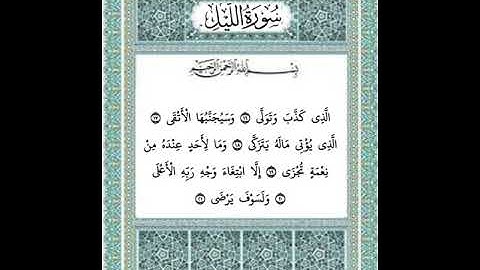 سُورَةُ اللَّيْلِ
بِسْمِ اللَّهِ الرَّحْمَٰنِ الرَّحِيمِ
الَّذِى كَذَّبَ وَتَوَلَّى ﴿١٦﴾ وَسَيُجَنَّبُهَا الْأَتْقَى ﴿١٧﴾
الَّذِى يُؤْتِى مَالَهُ يَتَزَكَّى ﴿١٨﴾ وَمَا لِأَحَدٍ عِنْدَهُ مِنْ
نِعْمَةٍ تُجْزَى ﴿١٩﴾ إِلَّا ابْتِغَاءَ وَجْهِ رَبِّهِ الْأَعْلَى
﴿٢٠﴾ وَلَسَوْفَ يَرْضَى ﴿٢١﴾